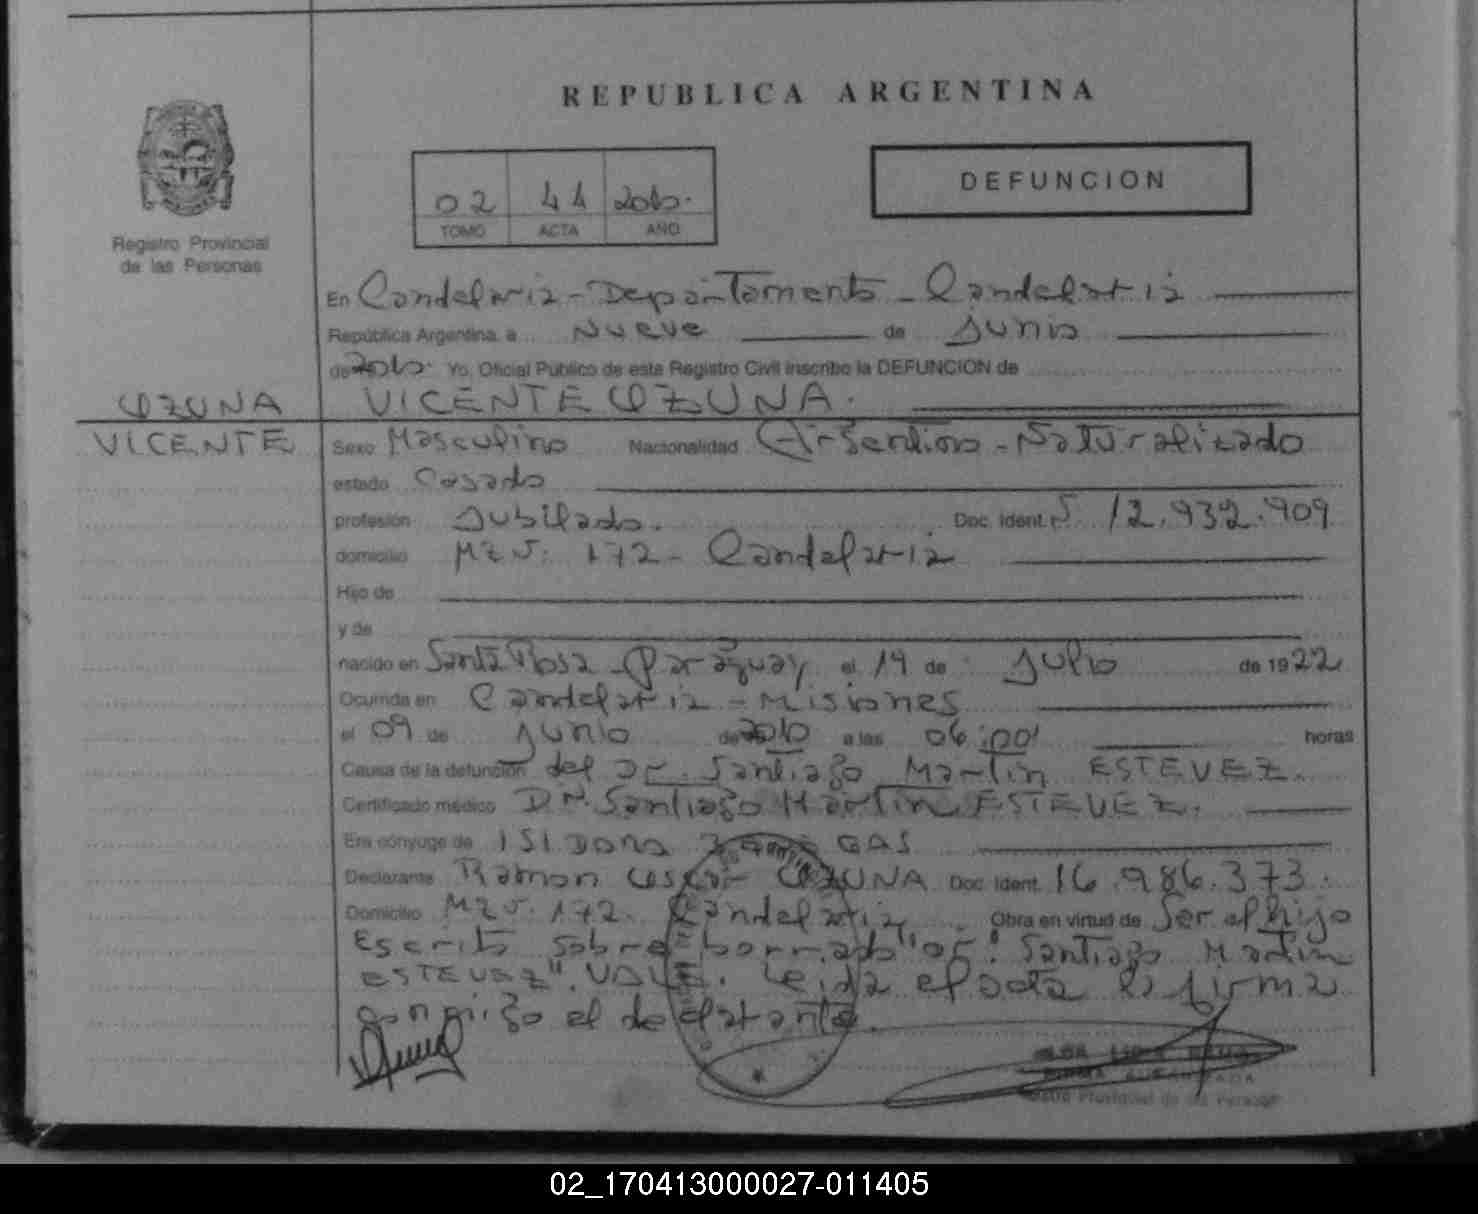 REPUBLICA ARGENTINA
DEFUNCION
02 44 2010.
TOMO ACTA AÑO
Registro Provincial
de las Personas
En Candelaria - Departamento - Candelaria
República Argentina, a Nueve de Junio
de 2010. Yo, Oficial Público de este Registro Civil inscribo la DEFUNCION de
OZUNA
VICENTE OZUNA.
VICENTE
Sexo Masculino Nacionalidad Argentino - Naturalizado
estado Casado
profesión Jubilado. Doc. Ident. 12.932.909
domicilio MZ 172 - Candelaria
Hijo de
y de
nacido en Santa Rosa - Paraguay el 14 de Julio de 1922
Ocurrida en Candelaria - Misiones
el 09 de Junio de 2010 a las 06:00 horas
Causa de la defunción del Dr. Santiago Martin ESTEVEZ.
Certificado médico Dr. Santiago Martin ESTEVEZ.
Era cónyuge de ISIDORA
Declarante Ramon Oscar OZUNA Doc. Ident. 16.986.373.
Domicilio MZ 172. Candelaria Obra en virtud de Ser el hijo
Escrito sobre borrado Santiago Martin
ESTEVEZ". VALE. Leida el acta la firma
conmigo el declarante.
02_170413000027-011405